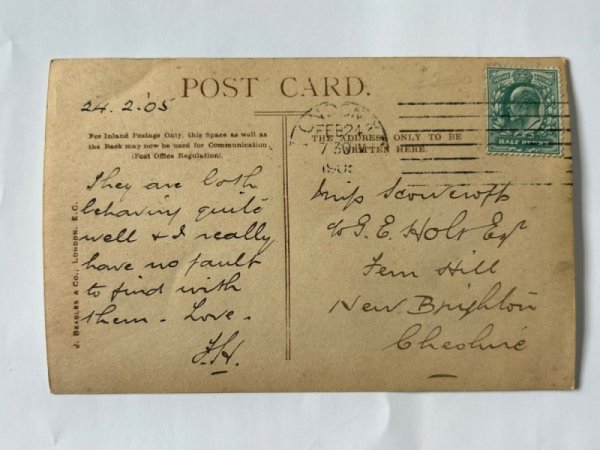 POST CARD.
24.2.'05
For Inland Postage Only, this Space as well as
the Back may now be used for Communication
(Post Office Regulation).
They are both
behaving quite
well & I really
have no fault
to find with
them - Love -
J.H.
J. BEAGLES & CO., LONDON, E.C.
FEB 24
7 30
THE ADDRESS ONLY TO BE
WRITTEN HERE.
HALF
Miss Scowcroft
c/o G. E. Holt Esqr
Fern Hill
New Brighton
Cheshire